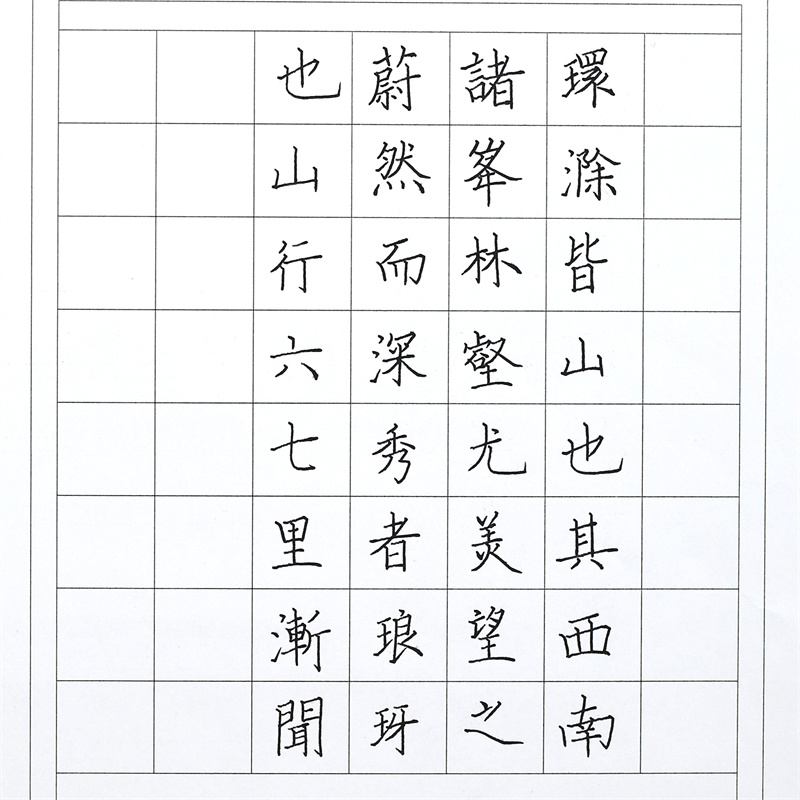 環滁皆山也其西南
諸峯林壑尤美望之
蔚然而深秀者琅玡
也山行六七里漸聞